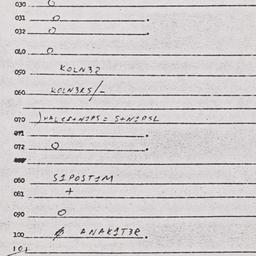 030 O
031 O .
032 O .
040 O
050 KOLN32
060 KOLN3RS/-
070
071 .
072 O .
080 S1POST1M
081 +
090 O
100 ANAK1T3R.
101